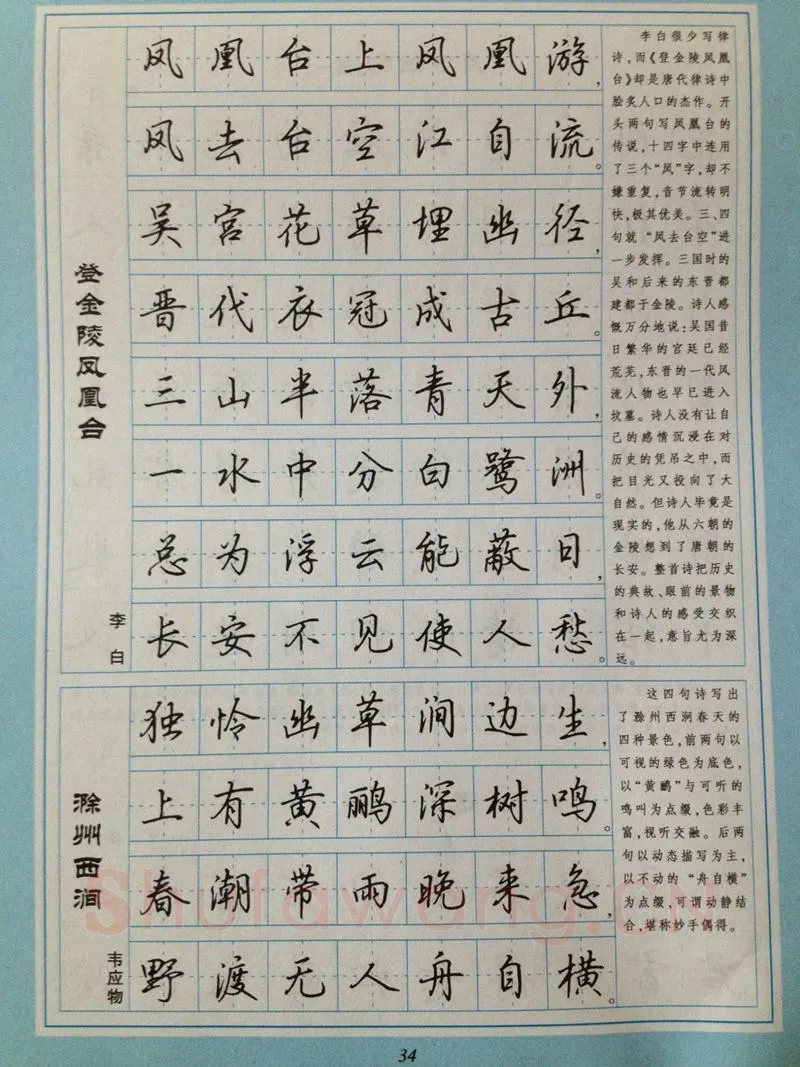 登金陵凤凰台
李白
凤凰台上凤凰游，
凤去台空江自流。
吴宫花草埋幽径，
晋代衣冠成古丘。
三山半落青天外，
一水中分白鹭洲。
总为浮云能蔽日，
长安不见使人愁。
李白很少写律
诗，而《登金陵凤凰
台》却是唐代律诗中
脍炙人口的杰作。开
头两句写凤凰台的
传说，十四字中连用
了三个“凤”字，却不
嫌重复，音节流转明
快，极其优美。三、四
句就“凤去台空”进
一步发挥。三国时的
吴和后来的东晋都
建都于金陵。诗人感
慨万分地说：吴国昔
日繁华的宫廷已经
荒芜，东晋的一代风
流人物也早已进入
坟墓。诗人没有让自
己的感情沉浸在对
历史的凭吊之中，而
把目光又投向了大
自然。但诗人毕竟是
现实的，他从六朝的
金陵想到了唐朝的
长安。整首诗把历史
的典故、眼前的景物
和诗人的感受交织
在一起，意旨尤为深
远。
滁州西涧
韦应物
独怜幽草涧边生，
上有黄鹂深树鸣。
春潮带雨晚来急，
野渡无人舟自横。
这四句诗写出
了滁州西涧春天的
四种景色，前两句以
可视的绿色为底色，
以“黄鹂”与可听的
鸣叫为点缀，色彩丰
富，视听交融。后两
句以动态描写为主，
以不动的“舟自横”
为点缀，可谓动静结
合，堪称妙手偶得。
34